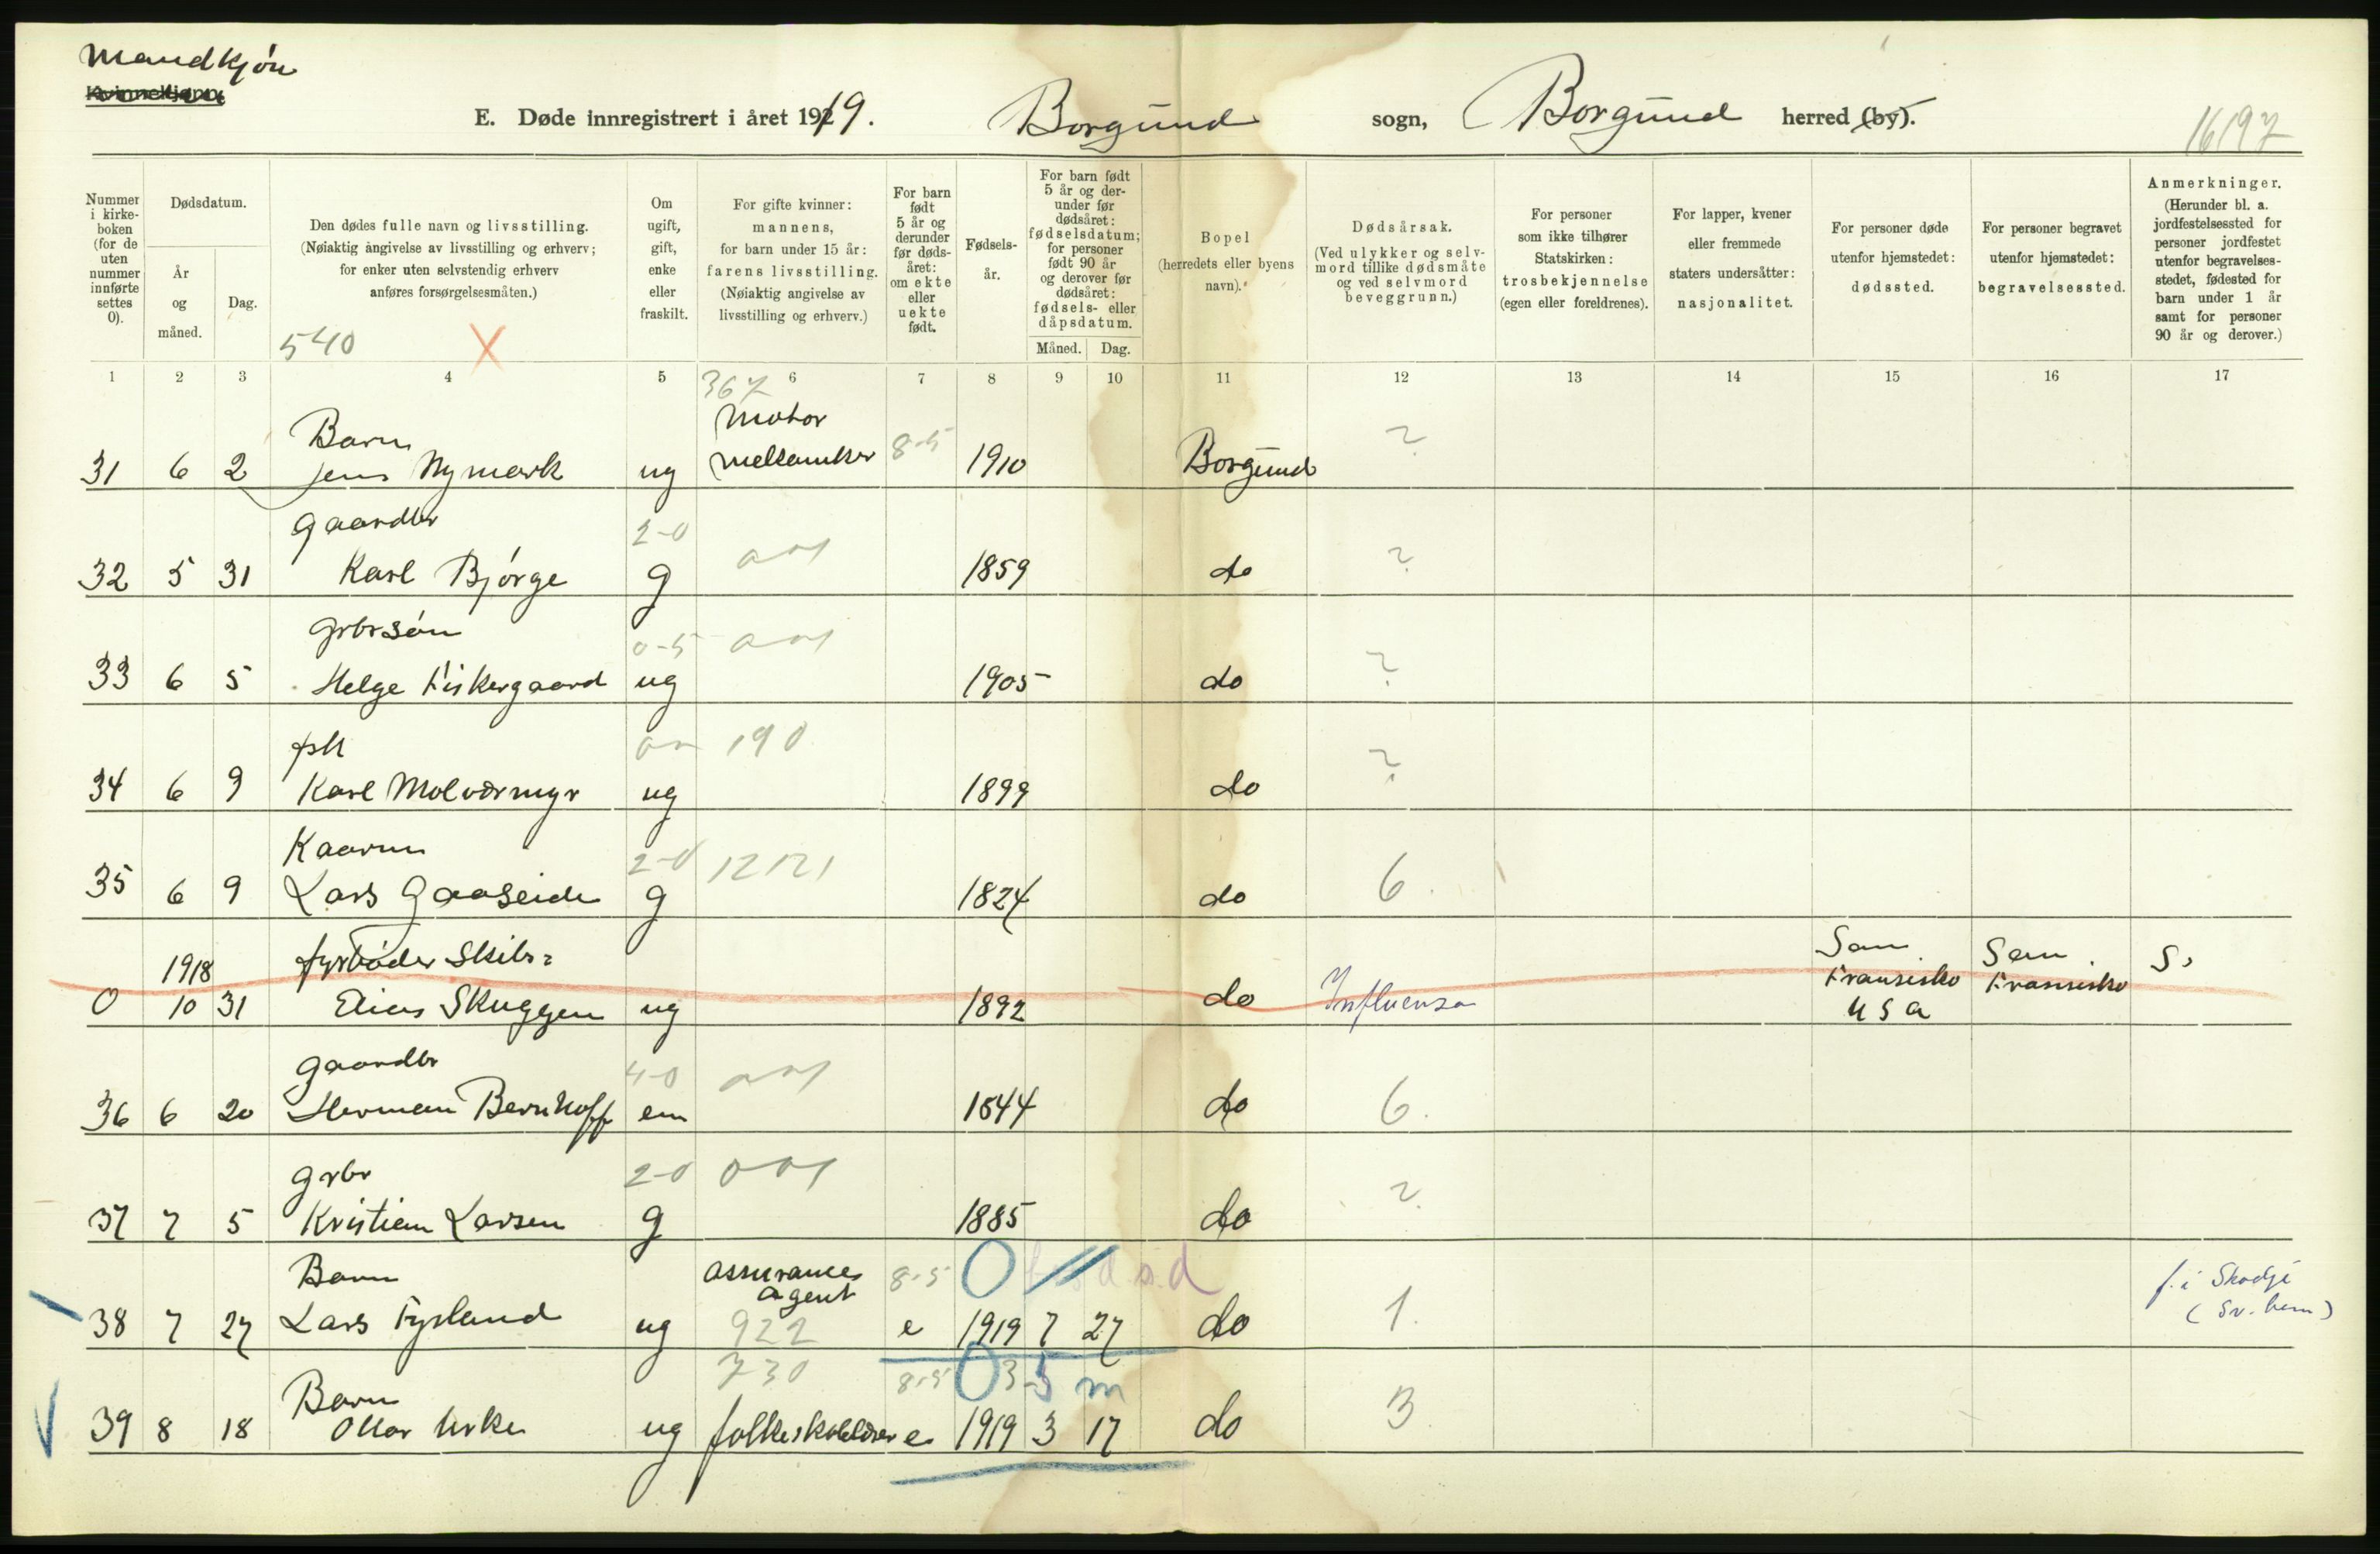 Mandkjøn
Kvinnekjønn
E. Døde innregistrert i året 1919.
Borgund sogn, Borgund herred (by).
16197
Nummer i kirke-boken (for de uten nummer innførte settes 0).
Dødsdatum.
År og måned.
Dag.
Den dødes fulle navn og livsstilling.
(Nøiaktig angivelse av livsstilling og erhverv;
for enker uten selvstendig erhverv
anføres forsørgelsesmåten.)
Om ugift, gift, enke eller fraskilt.
For gifte kvinner:
mannens,
for barn under 15 år:
farens livsstilling.
(Nøiaktig angivelse av
livsstilling og erhverv.)
For barn født 5 år og derunder før døds-året: om ekte eller uekte født.
Fødsels-år.
For barn født 5 år og der-under før dødsåret: fødselsdatum; for personer født 90 år og derover før dødsåret: fødsels- eller dåpsdatum.
Måned. Dag.
Bopel
(herredets eller byens
navn).
Dødsårsak.
(Ved ulykker og selv-
mord tillike dødsmåte
og ved selvmord
beveggrunn.)
For personer
som ikke tilhører
Statskirken:
trosbekjennelse
(egen eller foreldrenes).
For lapper, kvener
eller fremmede
staters undersåtter:
nasjonalitet.
For personer døde
utenfor hjemstedet:
dødssted.
For personer begravet
utenfor hjemstedet:
begravelsessted.
Anmerkninger.
(Herunder bl. a.
jordfestelsessted for
personer jordfestet
utenfor begravelses-
stedet, fødested for
barn under 1 år
samt for personer
90 år og derover.)
540 X
1 2 3 4 5 6 7 8 9 10 11 12 13 14 15 16 17
367
Barn Motor
31 6 2 Jens Nymark ug 8-5 1910 Borgund ?
Gaardbr 2-0
32 5 31 Karl Bjørge g 1859 do ?
Grbrsøn 0-5
33 6 5 Helge Fiskergaard ug 1905 do ?
190
34 6 9 Karl Molværmyr ug 1899 do ?
Kaarm 2-0 12121
35 6 9 Lars Gaaseide g 1824 do 6.
1918 fyrbøder Skibs= San San
0 10 31 Elias Skuggen ug 1892 do Influensa Fransisko Fransisko
U S A
Gaardbr 4-0
36 6 20 Herman Bernhoff em 1844 do 6.
Grbr 2-0
37 7 5 Kristian Larsen g 1885 do ?
Barn assurance 8-5 0 d
agent f. i Skodje
38 7 27 Lars Fysland ug 922 e 1919 7 27 do 1.
730 8-5 0 3-5 m
Barn
39 8 18 Ottar Urke ug folkeskolelærer e 1919 3 17 do 3